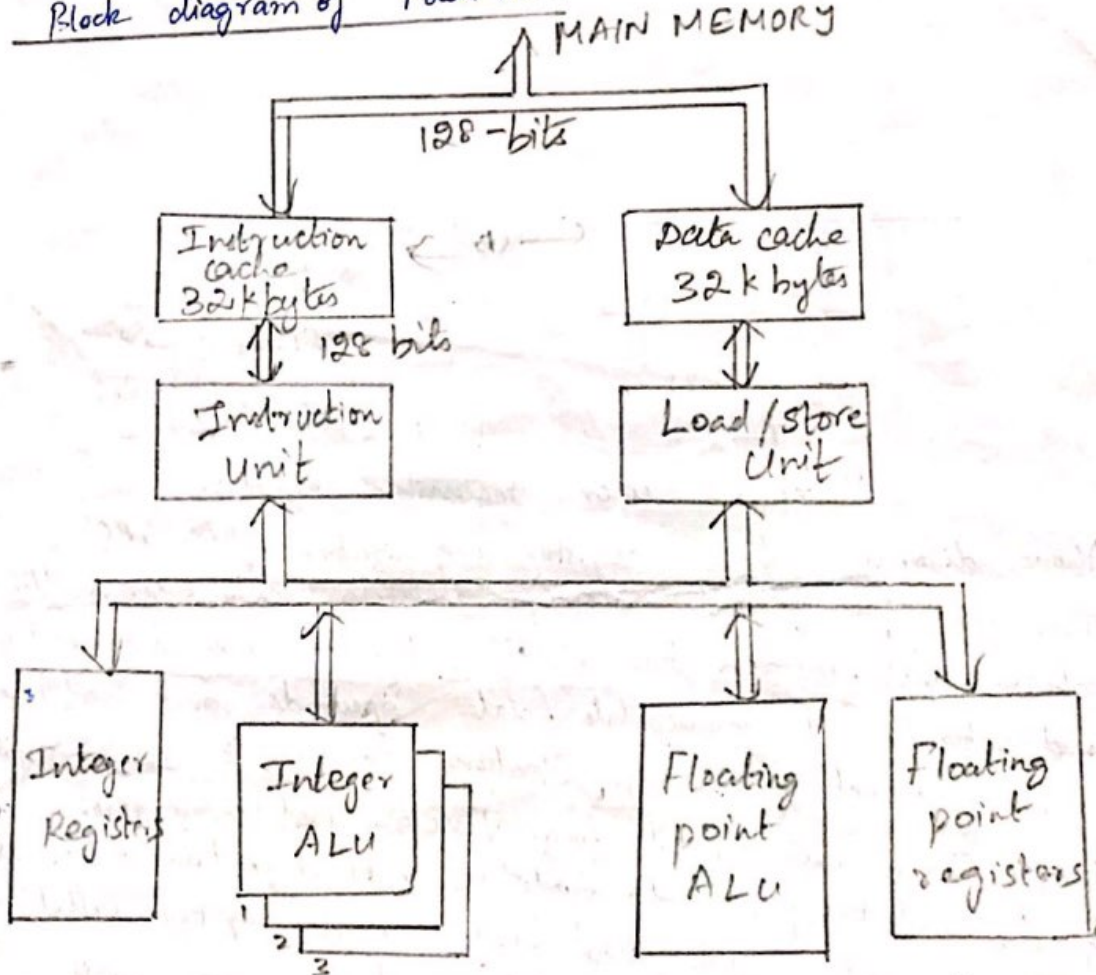 Block diagram of
MAIN MEMORY
128-bits
Instruction
cache
32k bytes
Data cache
32 k bytes
128 bits
Instruction
unit
Load/store
Unit
Integer
Registers
Integer
ALU
1
2
3
Floating
point
ALU
Floating
point
registers